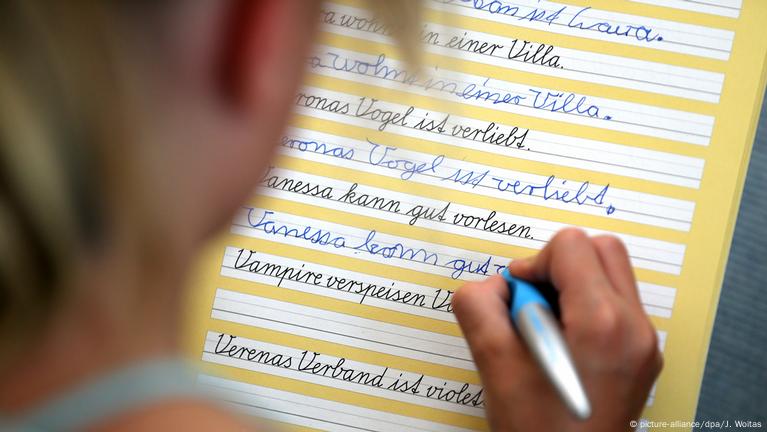 ist Laura.
wohnt in einer Villa.
wohnt in einer Villa.
ronas Vogel ist verliebt.
eronas Vogel ist verliebt.
Vanessa kann gut vorlesen.
Vanessa kann gut v
Vampire verspeisen V
Verenas Verband ist violet
© picture-alliance/dpa/J. Woitas